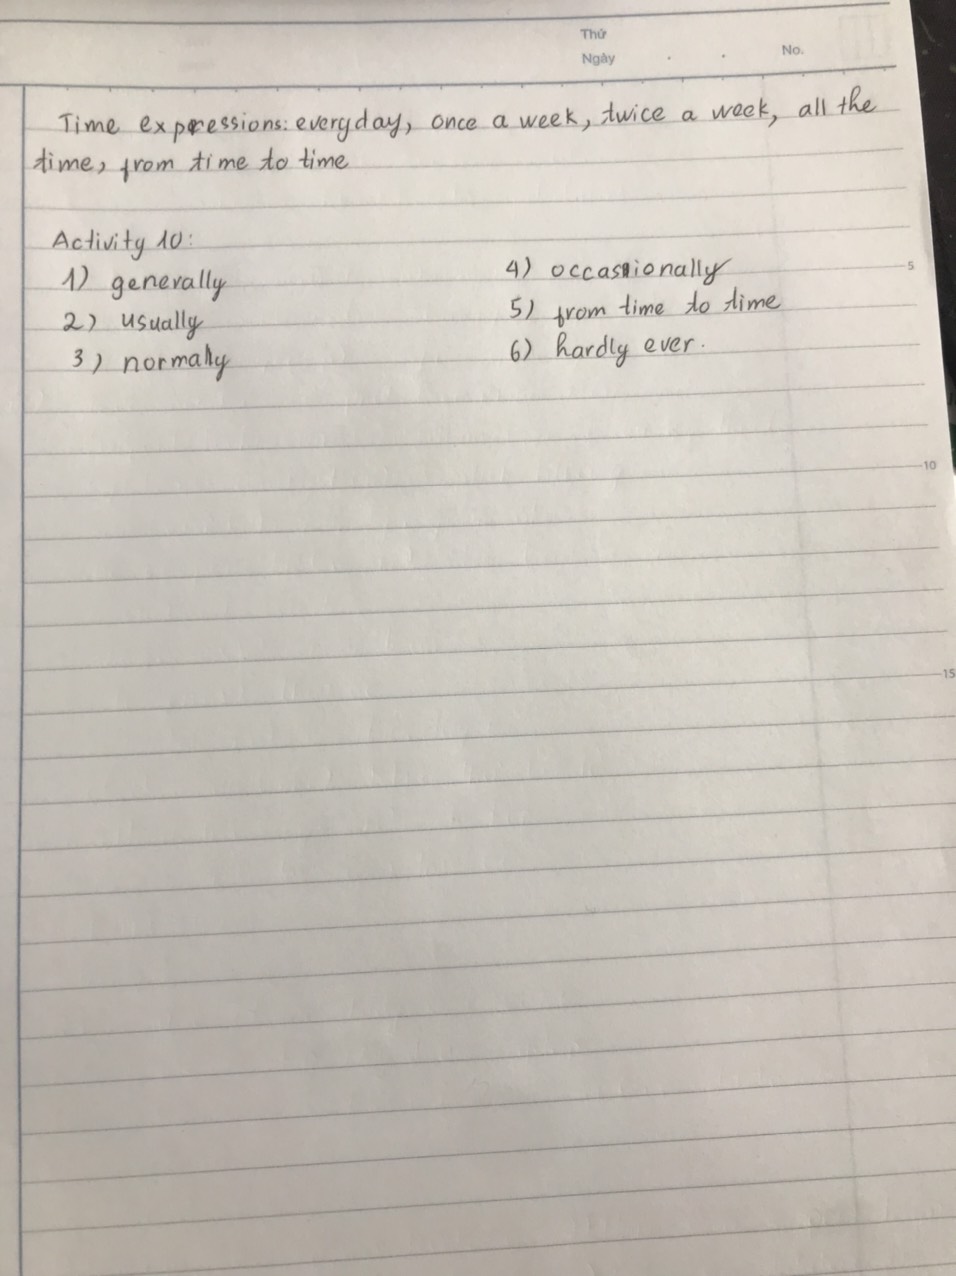 Thứ
Ngày . . No.
Time expressions: everyday, once a week, twice a week, all the
time, from time to time
Activity 10:
1) generally
2) usually
3) normally
4) occassionally
5) from time to time
6) hardly ever.
5
10
15